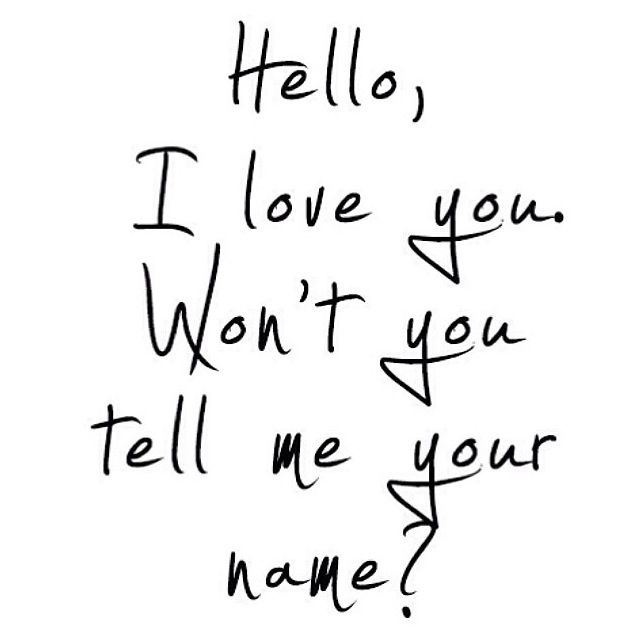 Hello,
I love you.
Won't you
tell me your
name?